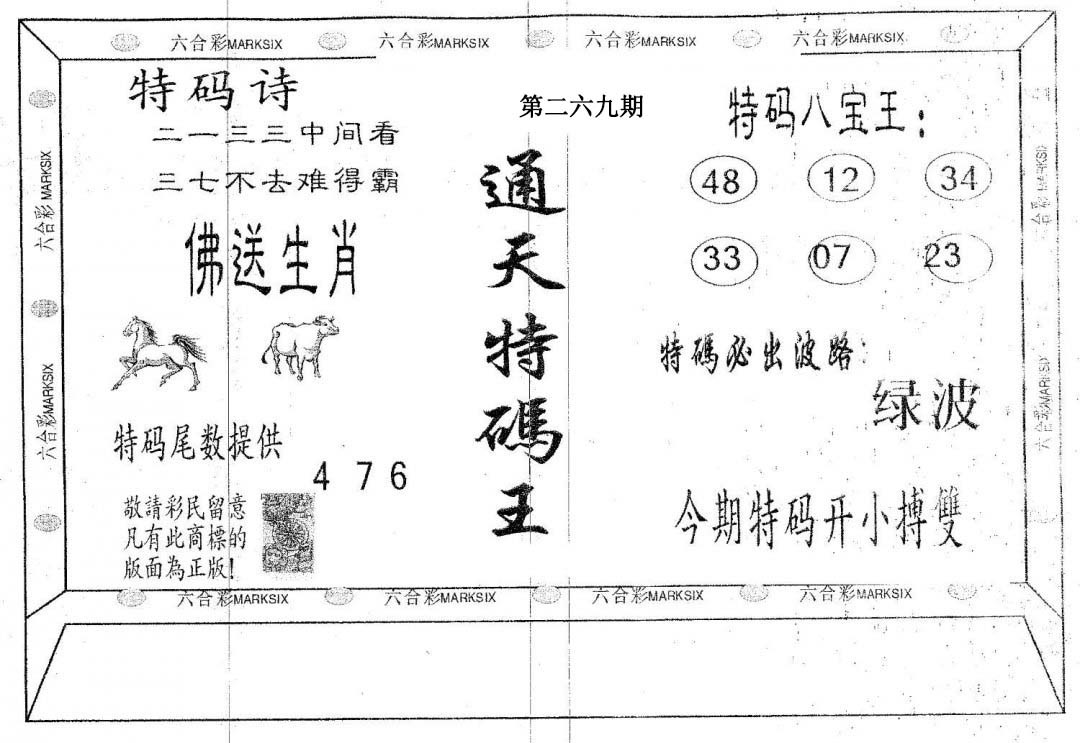 六合彩MARKSIX 六合彩MARKSIX 六合彩MARKSIX 六合彩MARKSIX
特码诗
二一三三中间看
三七不去难得霸
佛送生肖
特码尾数提供
4 7 6
敬請彩民留意
凡有此商標的
版面為正版!
第二六九期
通天特碼王
特码八宝王:
48 12 34
33 07 23
特碼必出波路:
绿波
今期特码开小搏雙
六合彩MARKSIX
六合彩MARKSIX
六合彩MARKSIX
六合彩MARKSIX 六合彩MARKSIX 六合彩MARKSIX 六合彩MARKSIX